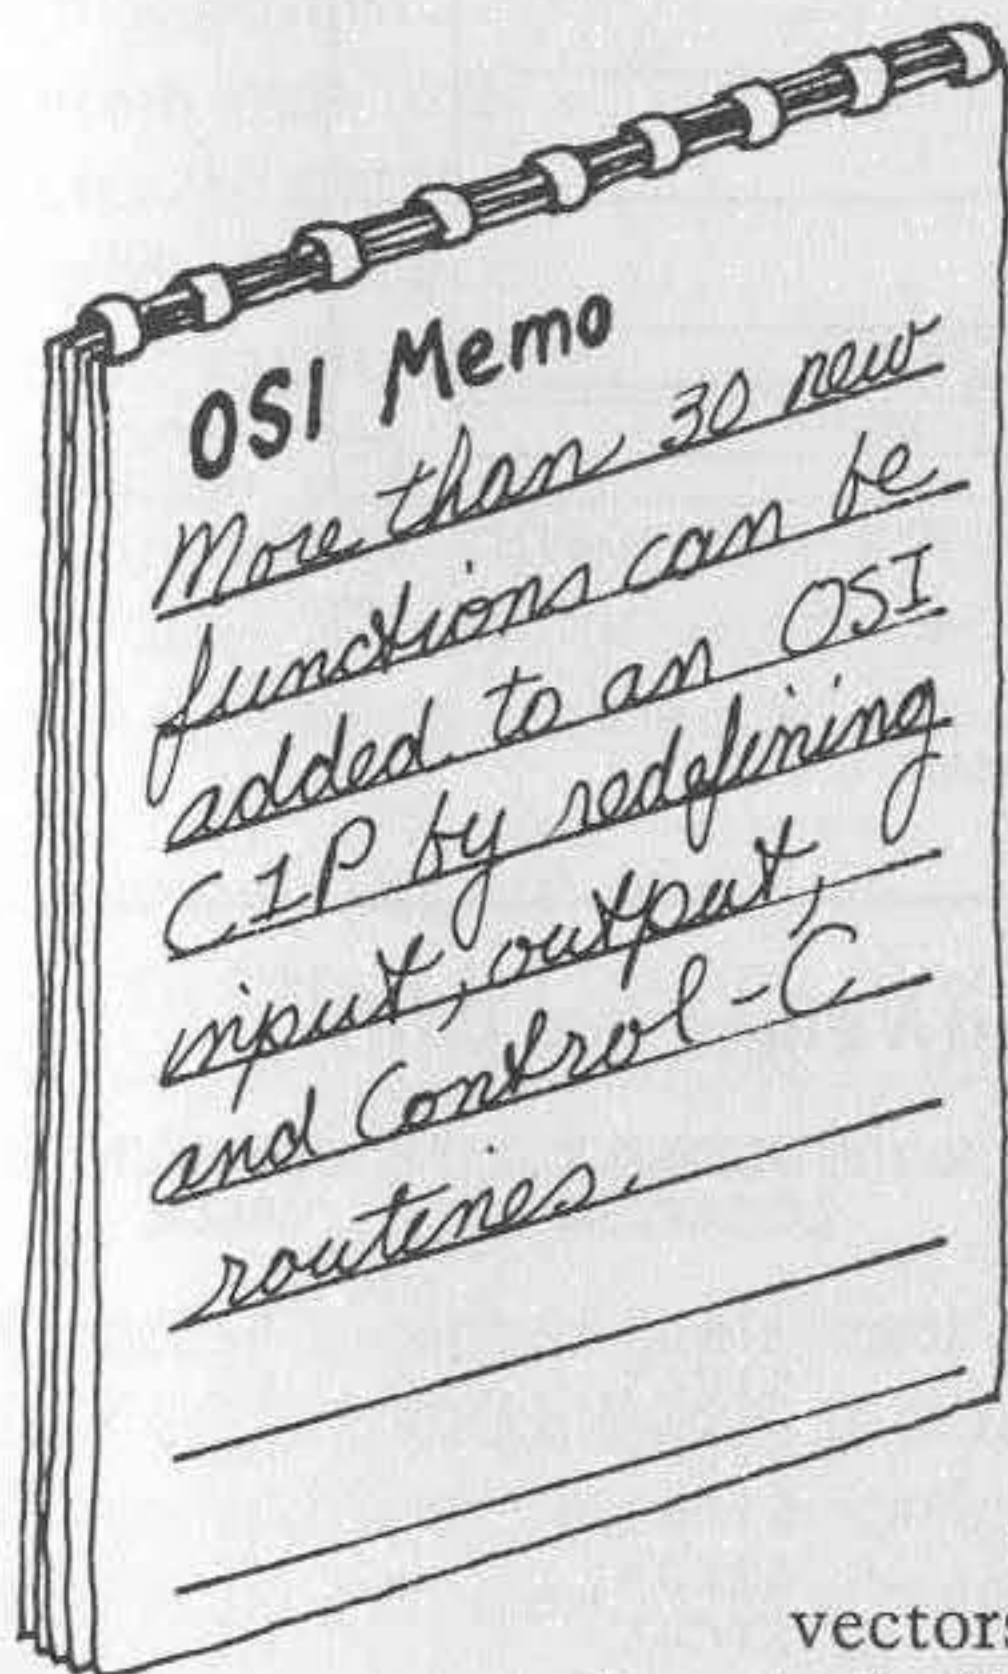 OSI Memo
More than 30 new
functions can be
added to an OSI
C1P by redefining
input, output,
and Control-C
routines.
vectors